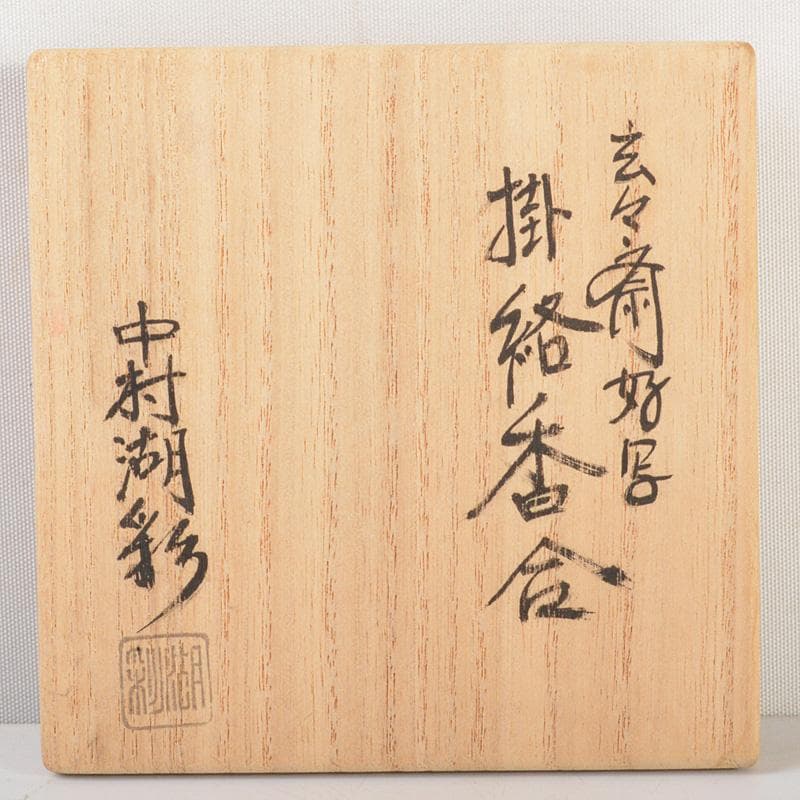 玄々斎好写
掛絡香合
中村湖彩
湖彩